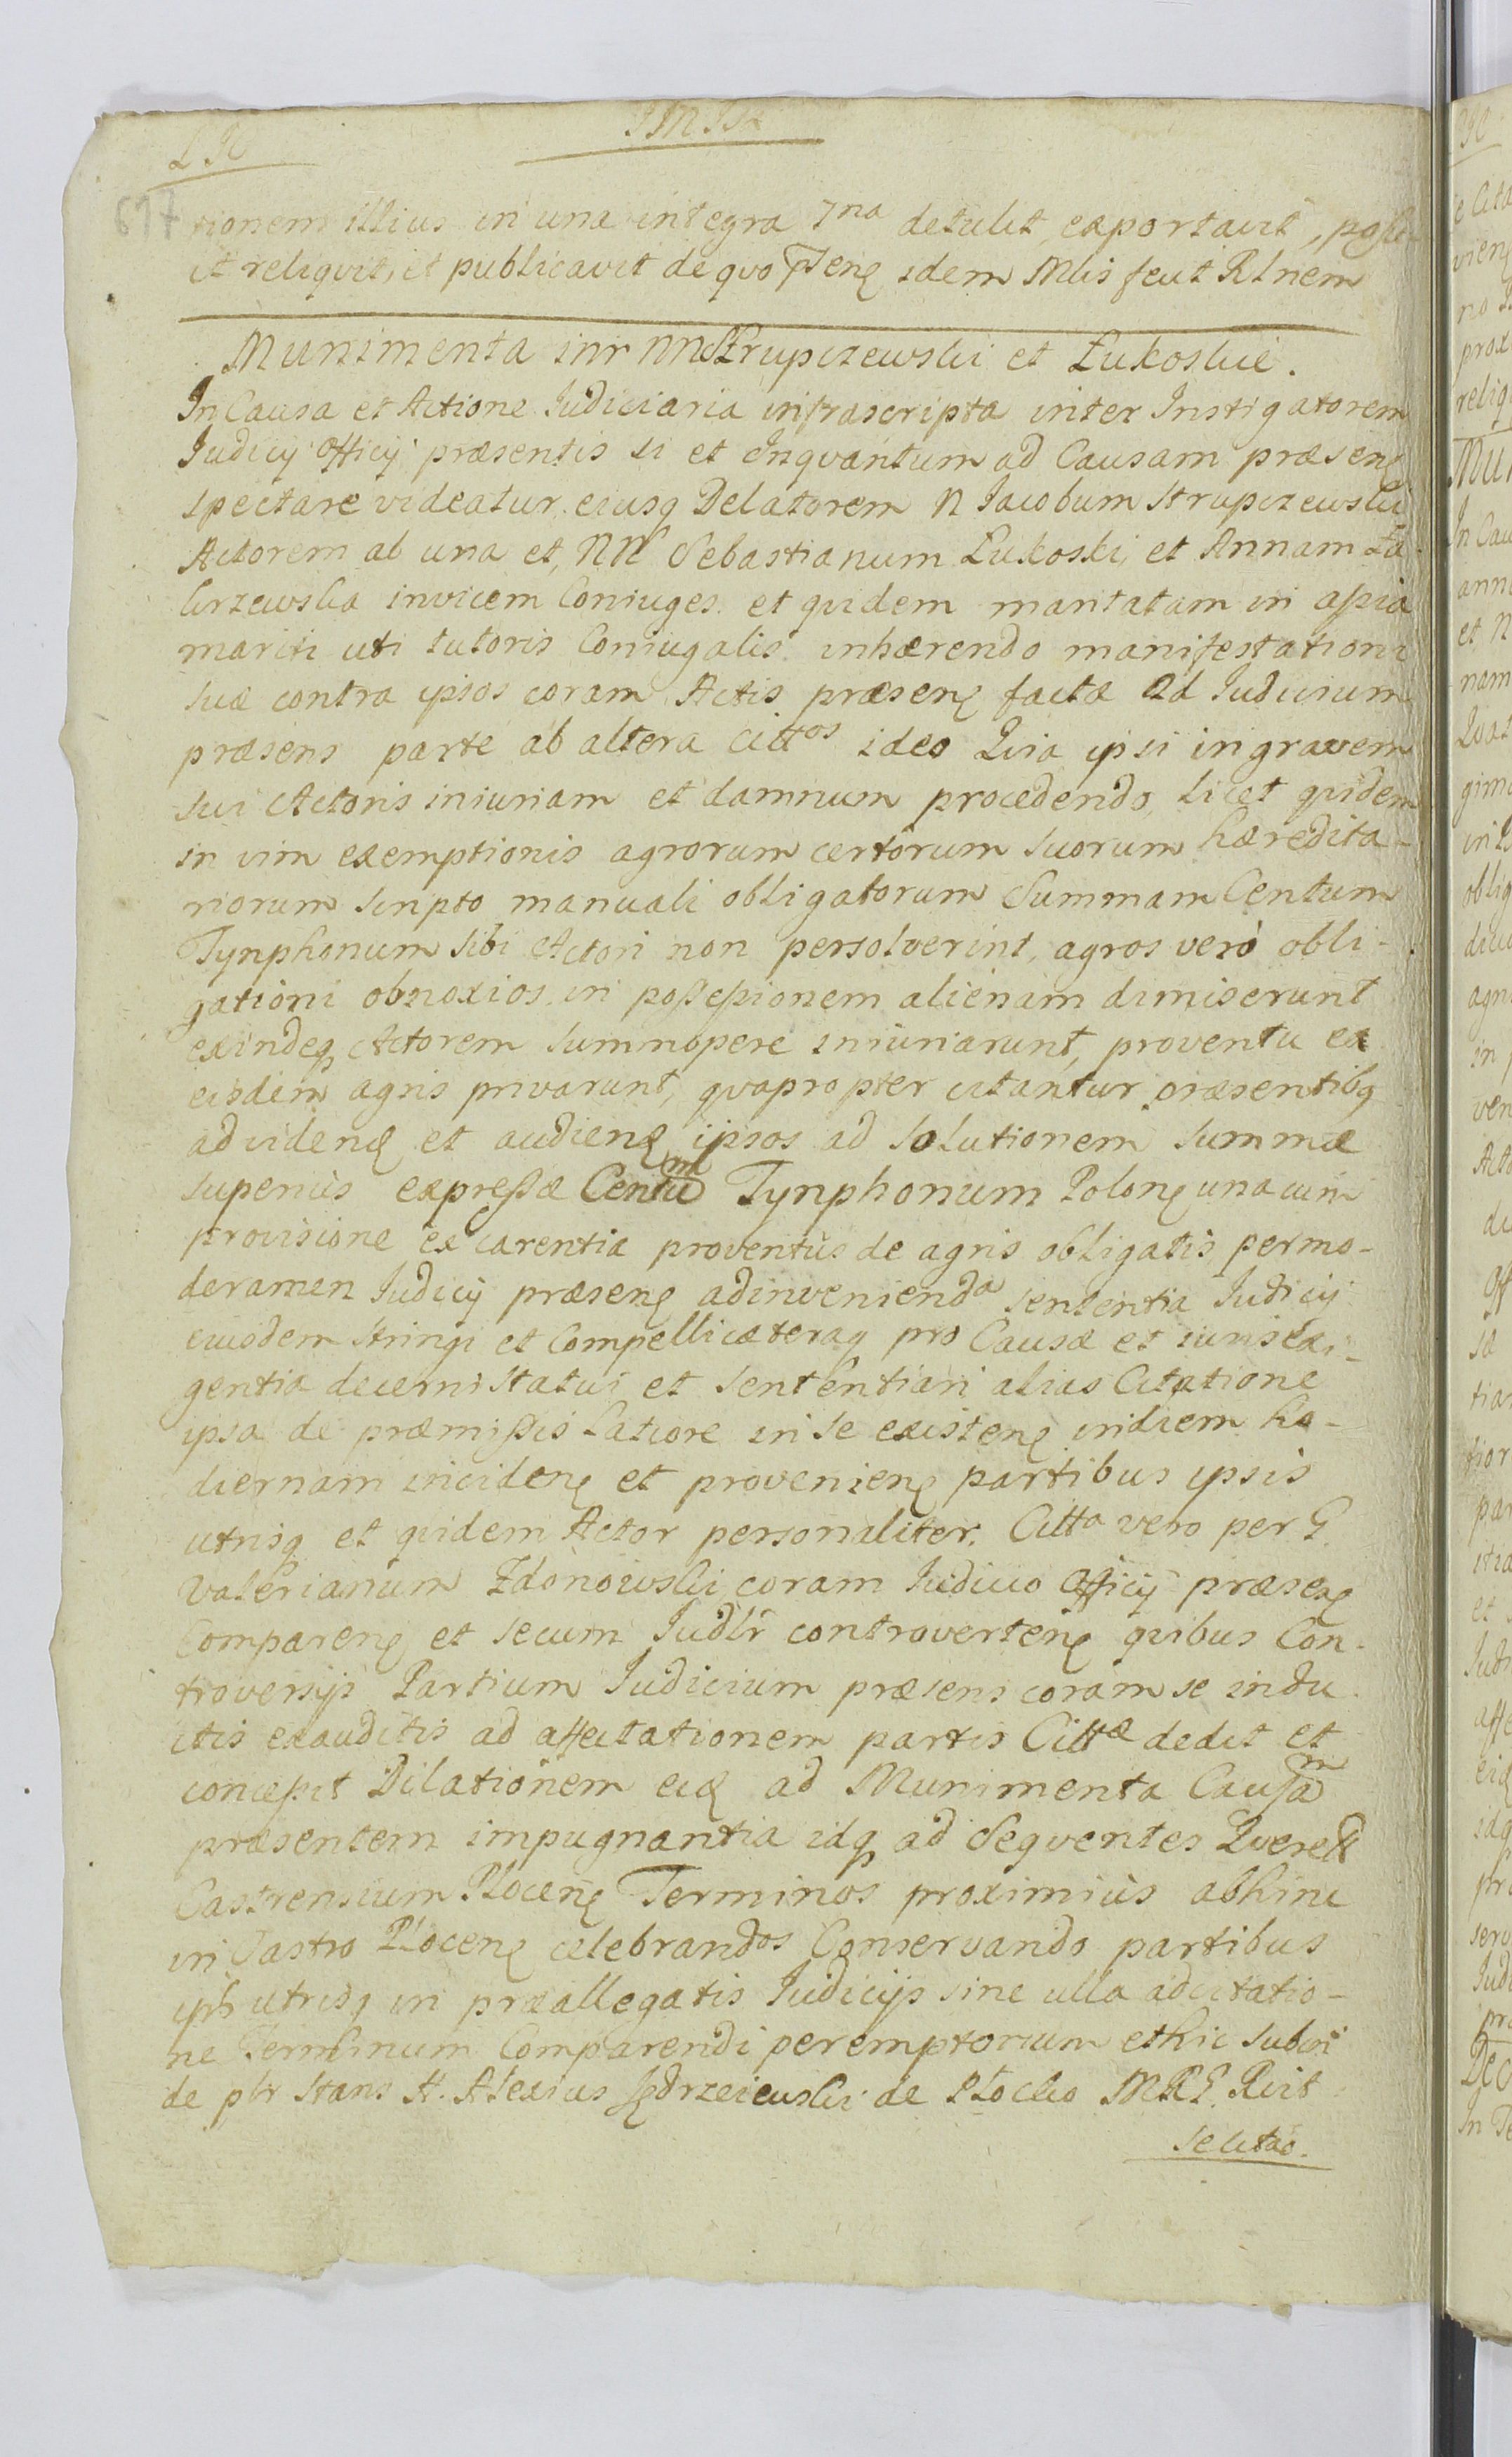 617
tionem illius in una integra 7na detulit, exportavit, posu-
it reliqvit, et publicavit de qvo pñtenẽ idem Mlis fecit Rlnem
Munimenta inr NN Strupczewski et Łukoskie.
In Causa et Actione Judiciaria infrascripta inter Instigatorem
Judicij Officij præsentis si et inqvantum ad Causam præsenẽ
spectare videatur, eiusq Delatorem N Jacobum Strupczewski
Actorem ab una et, NN Sebastianum Łukoski, et Annam Za
krzewska invicem Coniuges. et qvidem maritatam in assia
mariti uti tutoris Coniugalis. inhærendo manifestationi
suæ contra ipsos coram Actis præsenẽ factæ Ad Judicium
præsens parte ab altera Cittos ideo Qvia ipsi in gravem
sui Actoris iniuriam et damnum procedendo, licet qvidem
in vim exemptionis agrorum certorum suorum hæredita-
riorum scripto manuali obligatorum Summam Centum
Tynphonum Sibi Actori non persolverint, agros verò obli-
gationi obnoxios in possessionem alienam dimiserunt
exindeq Actorem summopere iniuriarunt, proventu ex
eisdem agris privarunt, qvapropter citantur præsentibq
ad videnẽ et audienẽ ipsos ad Solutionem Summæ
superiùs expressæ Centum Tynphonum Polonẽ una cum
provisione ex carentia proventûs de agris obligatis, per mo-
deramen Judicij præsenẽ adinvenienda sententia Judicij
eiusdem stringi et Compelli cæteraq pro Causæ et iuris exi-
gentia decerni statui et Sententiari alias Citatione
ipsa de præmissis latiore in se existenẽ in diem ho-
diernam incidenẽ et provenienẽ partibus ipsis
utrisq et qvidem Actor personaliter. Citta vero per G.
Valerianum Zdonowski coram Judicio Officij præsenẽ
Comparenẽ et secum Judlr controvertenẽ qvibus Con-
troversijs Partium Judicium præsens coram se indu
ctis exauditis ad affectationem partis Cittæ dedit et
concessit Dilationem eid ad Munimenta Causam
præsentem impugnantia idq ad Seqventes Qverell
Castrensium Plocenẽ Terminos proximiùs abhinc
in Castro Plocenẽ celebrandos Conservando partibus
ipsis utrisq in præallegatis Judicijs sine ulla adcitatio-
ne Terminum Comparendi peremptorium et hic subin
de plr Stans H. Alexius Jędrzeiewski de Płocko MRG. Rvit
Se citao.